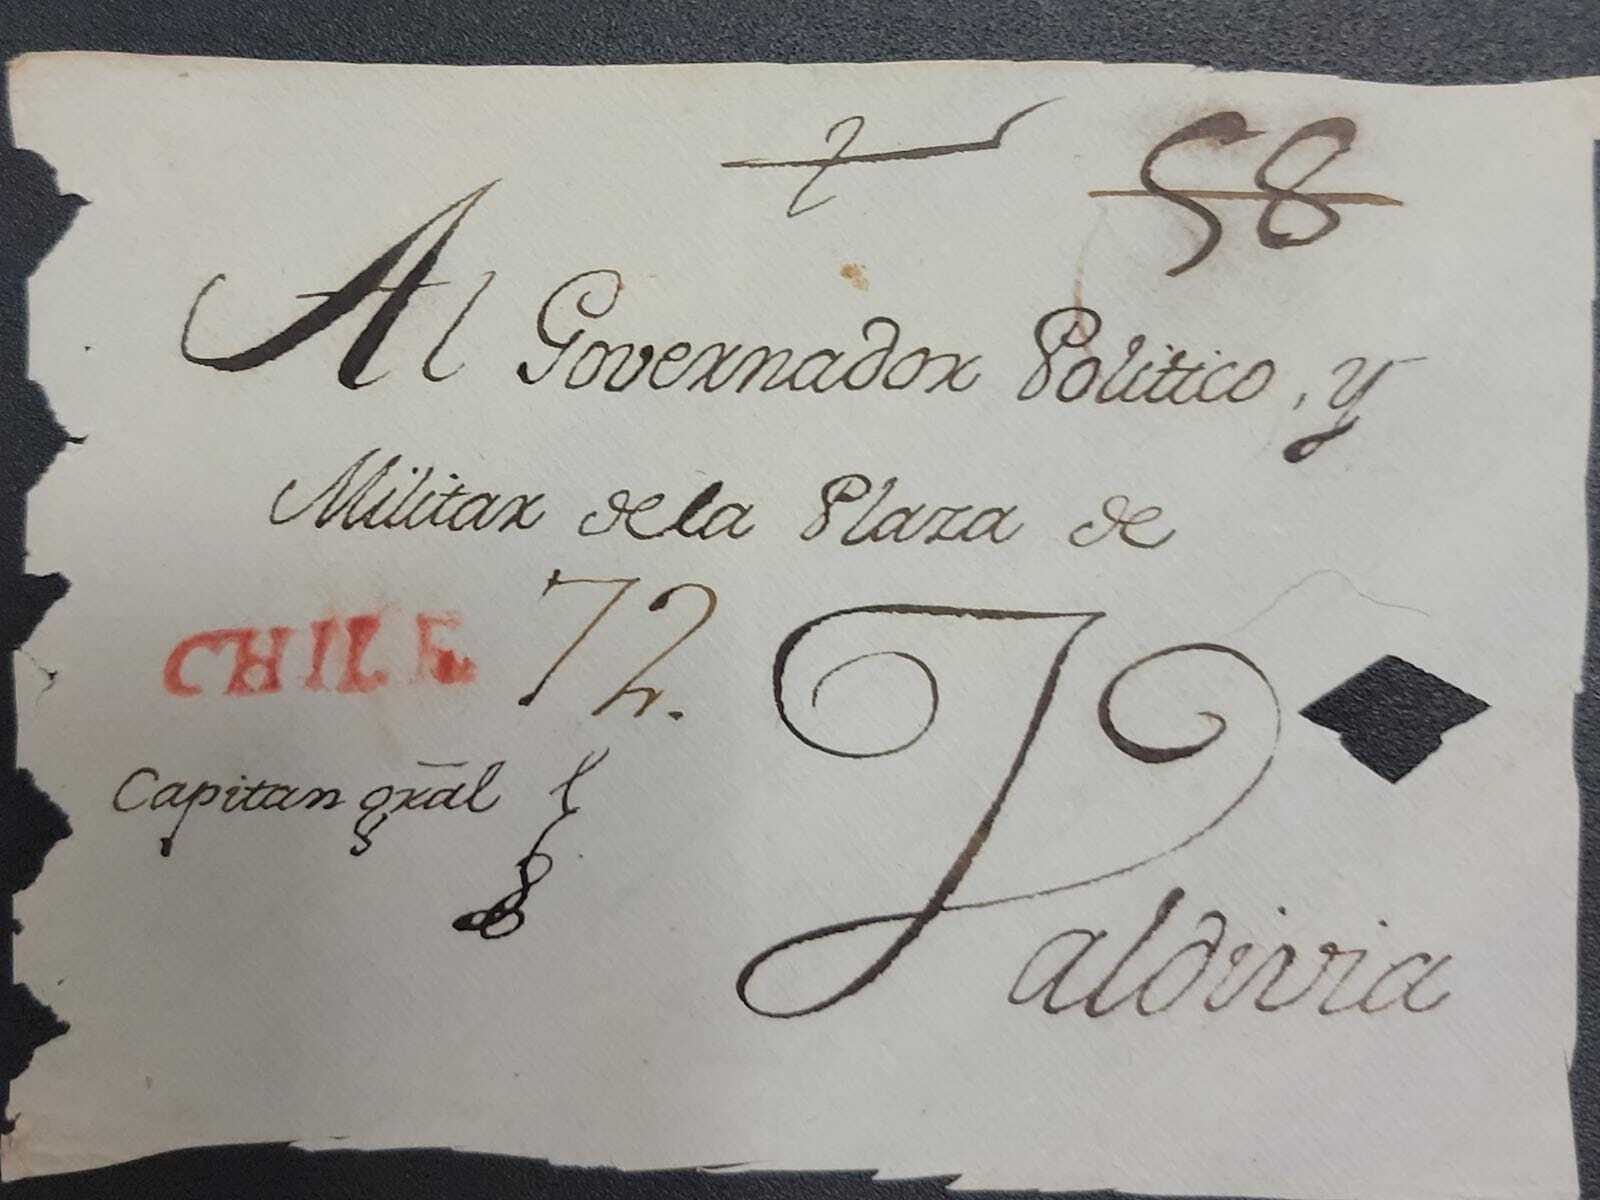 58
Al Governador Politico, y
Militar de la Plaza de
CHILE 72.
Valdivia
Capitan gral